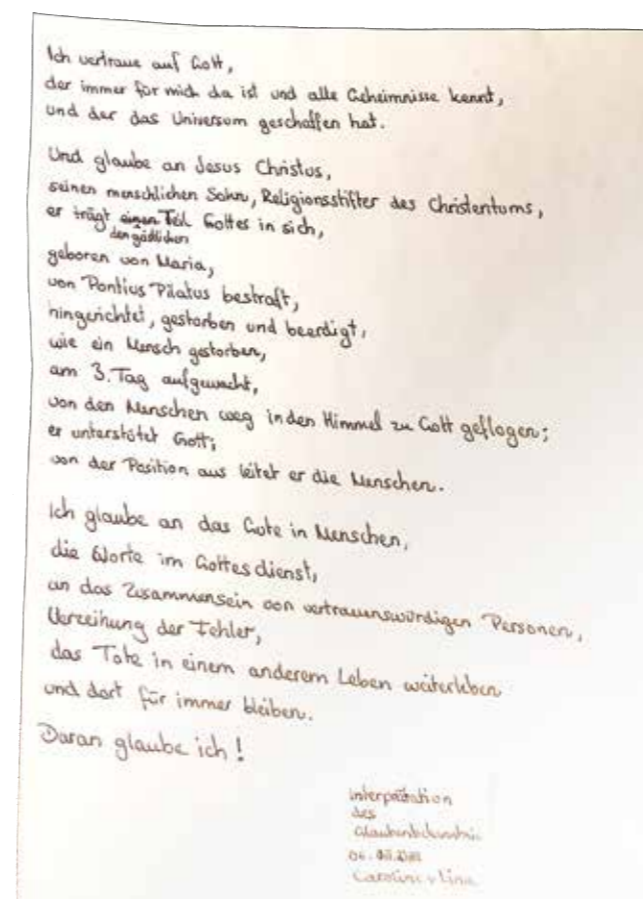 Ich vertraue auf Gott,
der immer für mich da ist und alle Geheimnisse kennt,
und der das Universum geschaffen hat.
Und glaube an Jesus Christus,
seinen menschlichen Sohn, Religionsstifter des Christentums,
er trägt einen Teil Gottes in sich,
den göttlichen
geboren von Maria,
von Pontius Pilatus bestraft,
hingerichtet, gestorben und beerdigt,
wie ein Mensch gestorben,
am 3. Tag aufgewacht,
von den Menschen weg in den Himmel zu Gott geflogen;
er unterstützt Gott;
von der Position aus leitet er die Menschen.
Ich glaube an das Gute in Menschen,
die Worte im Gottesdienst,
an das Zusammensein von vertrauenswürdigen Personen,
Verzeihung der Fehler,
das Tote in einem anderem Leben weiterleben
und dort für immer bleiben.
Daran glaube ich!
Interpretation
des
06.
Caroline + Lina